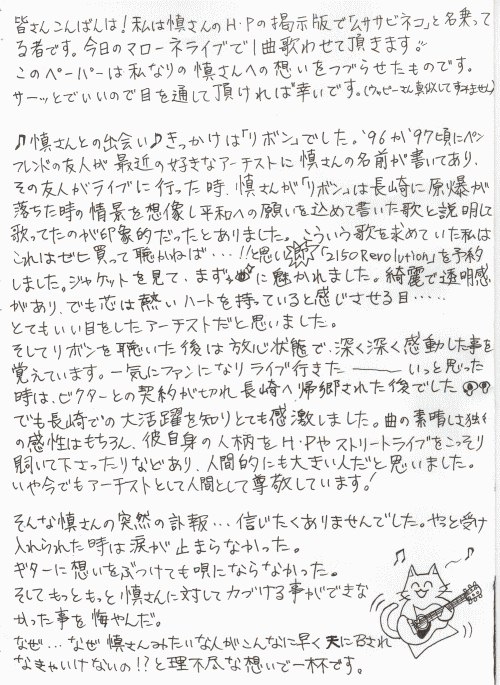 皆さんこんばんは！私は慎さんのH・Pの掲示版で「ムササビネコ」と名乗って
る者です。今日のマローネライブで1曲歌わせて頂きます。
このペーパーは私なりの慎さんへの想いをつづらせたものです。
サーッとでいいので目を通して頂ければ幸いです。(ウッピーさん真似してすみません)
♪慎さんとの出会い♪きっかけは「リボン」でした。'96か'97頃にペン
フレンドの友人が最近の好きなアーチストに慎さんの名前が書いてあり、
その友人がライブに行った時、慎さんが「リボン」は長崎に原爆が
落ちた時の情景を想像し平和への願いを込めて書いた歌と説明して
歌ってたのが印象的だったとありました。こういう歌を求めていた私は
これはぜヒ買って聴かねば…!!と思い「2150 Revolution」を予約
しました。ジャケットを見て、まず に魅かれました。綺麗で透明感
があり、でも芯は熱いハートを持っていると感じさせる目……
とてもいい目をしたアーチストだと思いました。
そしてリボンを聴いた後は放心状態で、深く深く感動した事を
覚えています。一気にファンになりライブ行きた――いっと思った
時は、ビクターとの契約が切れ長崎へ帰郷された後でした
でも長崎での大活躍を知りとても感激しました。曲の素晴しさ独特
の感性はもちろん、彼自身の人柄をH・Pやストリートライブをこっそり
開いて下さったりなどあり、人間的にも大きい人だと思いました。
いや今でもアーチストとして人間として尊敬しています！
そんな慎さんの突然の訃報…信じたくありませんでした。やっと受け
入れられた時は涙が止まらなかった。
ギターに想いをぶつけても唄にならなかった。
そしてもっともっと慎さんに対して力づける事ができな
かった事を悔やんだ。
なぜ…なぜ慎さんみたいな人がこんなに早く天に召され
なきゃいけないの!?と理不尽な想いで一杯です。